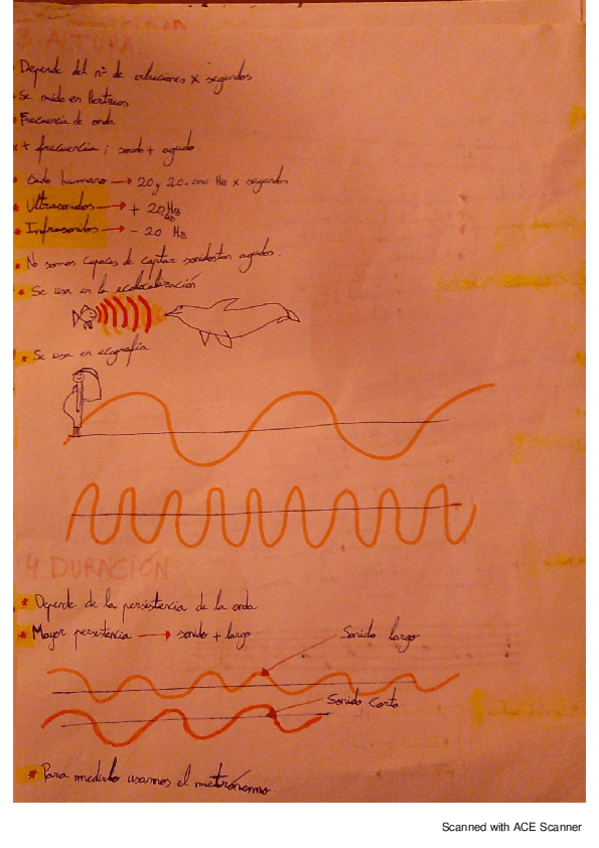 3. ALTURA
Depende del nº de oscilaciones x segundos
Se mide en Hertzios
Frecuencia de onda
+ frecuencia ; sonido + agudo
Oido humano → 20 y 20.000 Hz x segundos
Ultrasonidos → + 20 Hz
Infrasonidos → - 20 Hz
No somos capaces de captar sonidos tan agudos.
Se usa en la ecolocalización
Se usa en ecografia
4. DURACIÓN
Depende de la persistencia de la onda.
Mayor persistencia → sonido + largo.
Sonido largo
Sonido Corto
Para medirlo usamos el metrónomo.
Scanned with ACE Scanner